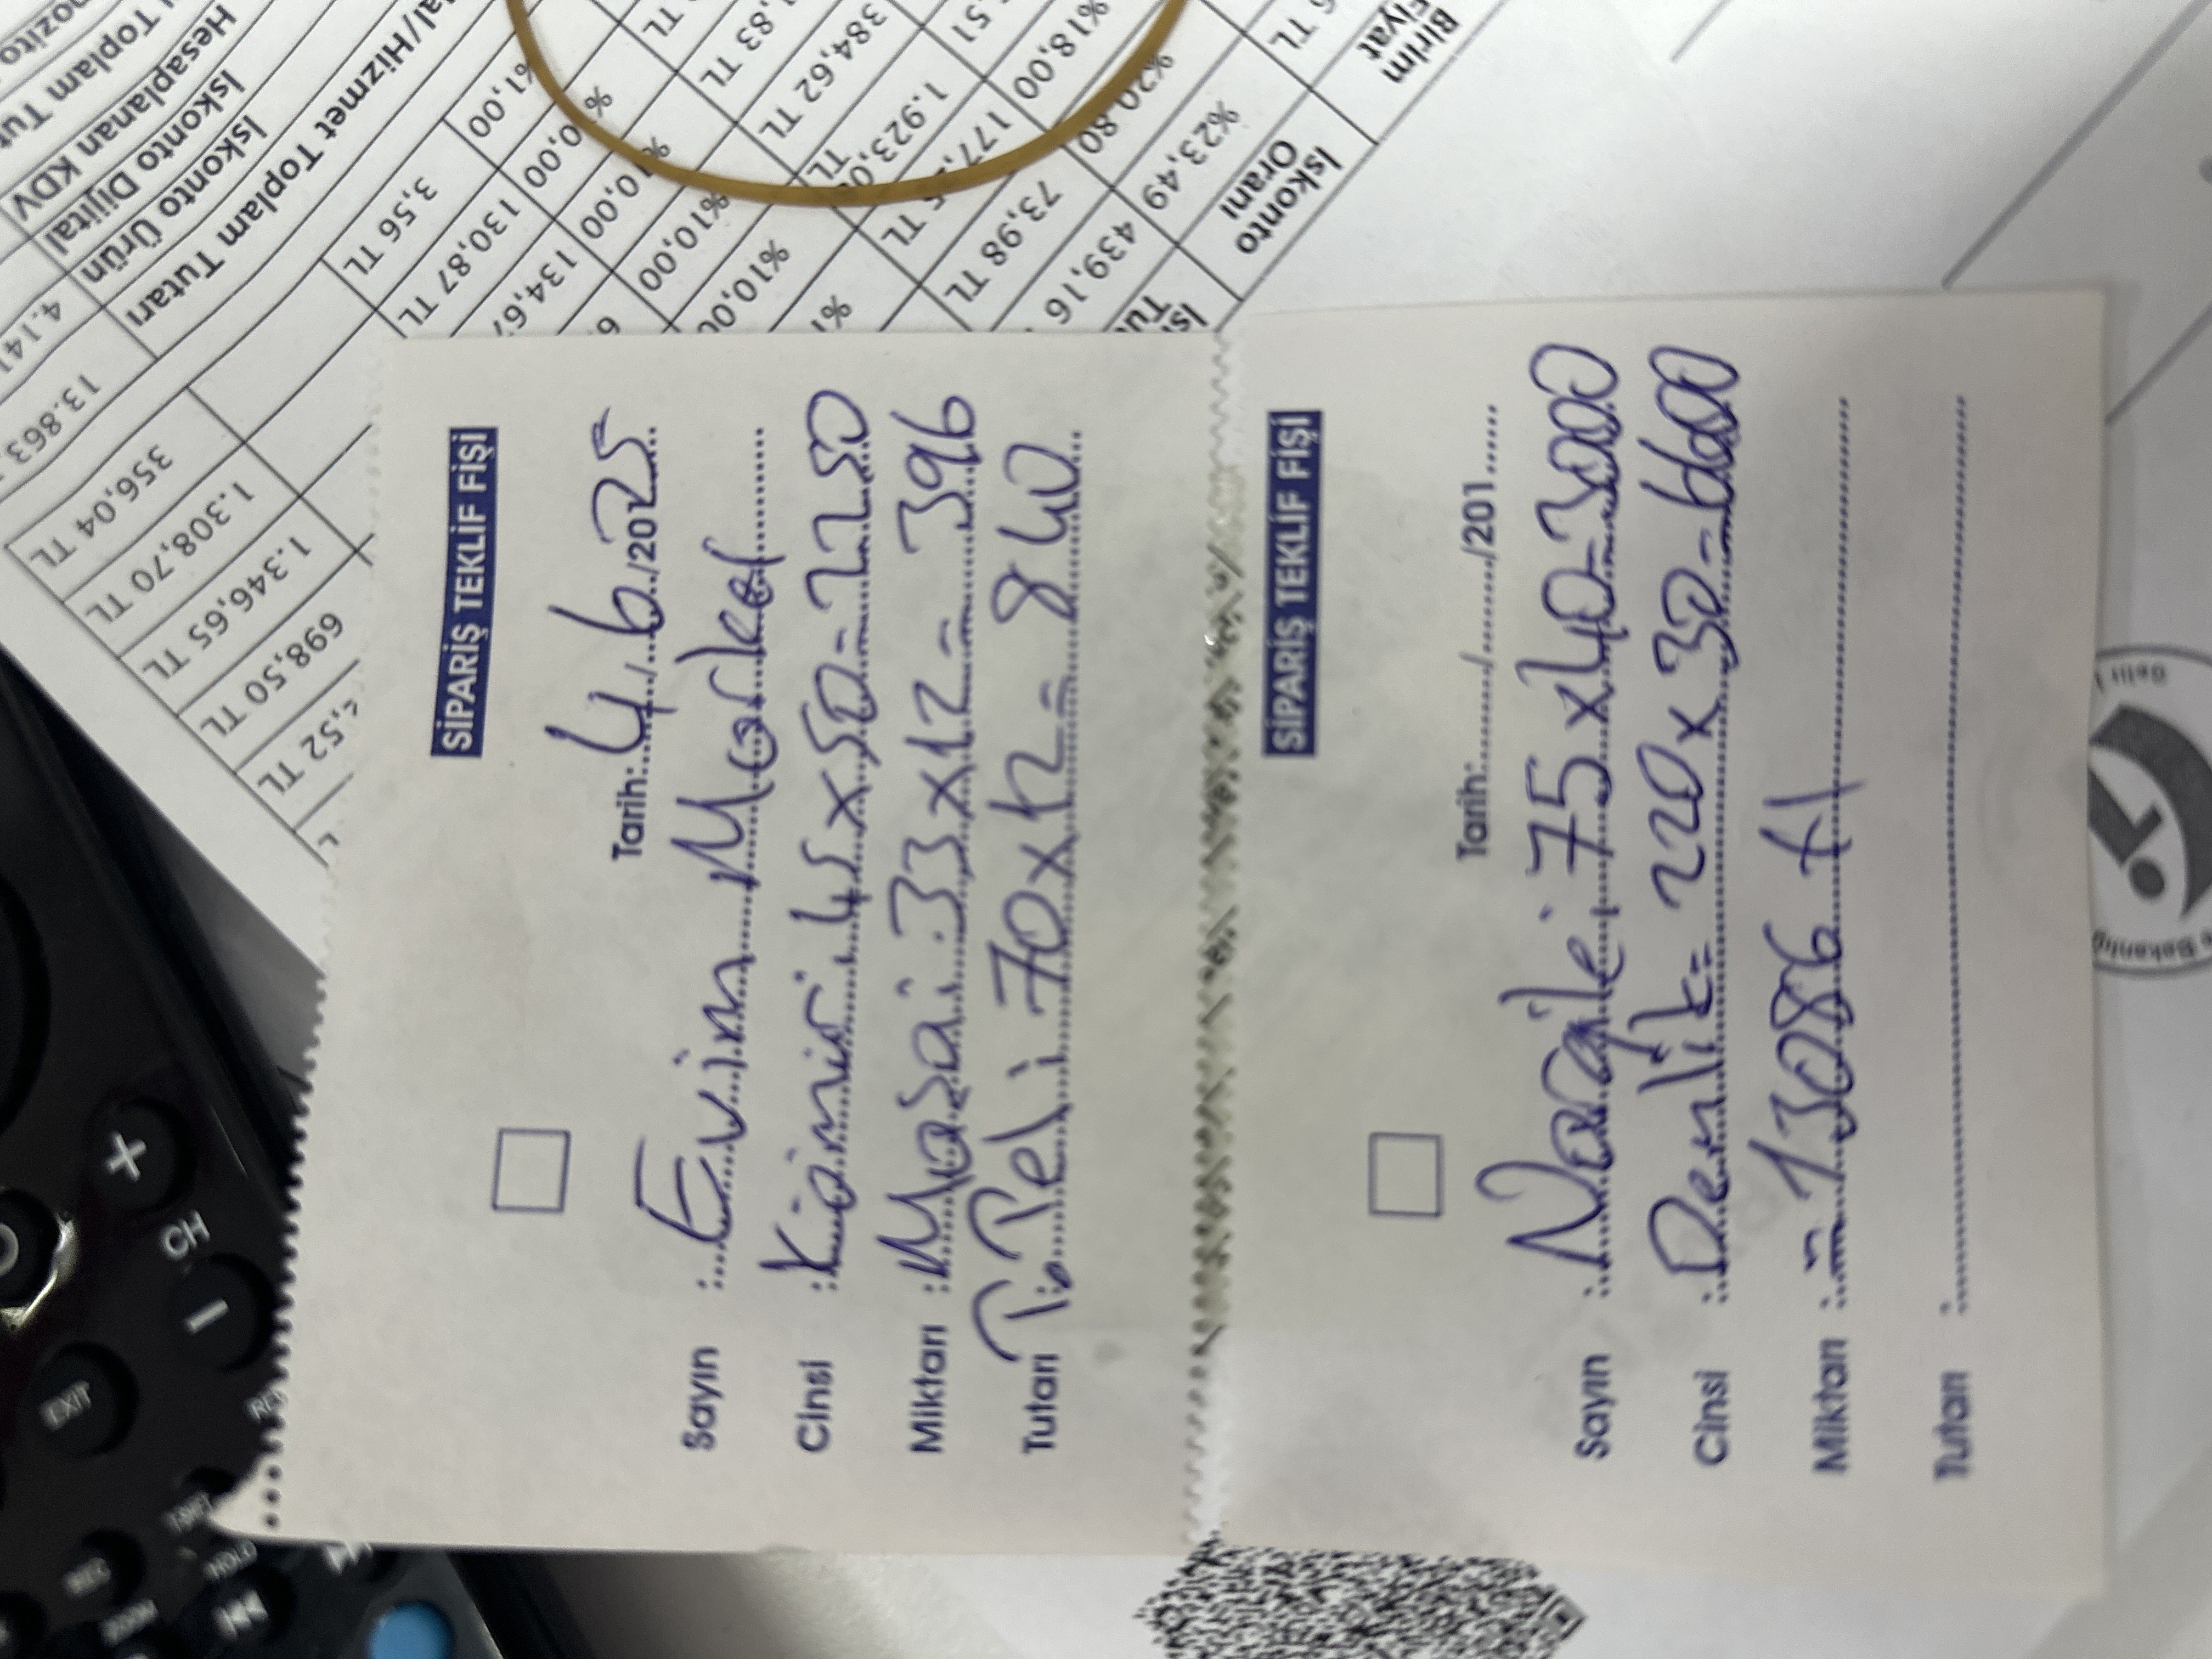 SİPARİŞ TEKLİF FİŞİ
Tarih: 4/6/2025
Sayın : Evin Market
Cinsi : Kömür 45x50=2250
Miktarı : Maşa: 33x12=396
Tutarı T.Tel: 70x12=840
SİPARİŞ TEKLİF FİŞİ
Tarih:......../......../201......
Sayın : Nargile: 75x40=3000
Cinsi : Demlik= 220x30=6600
Miktarı : = 13086 tl
Tutarı :
Birim Fiyat
İskonto Oranı
%23,49
439,16
%20,80
73,98 TL
%18,00
1.923,0
TL
384,62 TL
%10,00
%10,00
134,67
130,87 TL
3,56 TL
al/Hizmet Toplam Tutarı
İskonto Ürün
İskonto Dijital
Hesaplanan KDV
13.863,
4.141
356,04 TL
1.308,70 TL
1.346,65 TL
698,50 TL
,52 TL
CH
EXIT
REC
ZOOM
HOLD